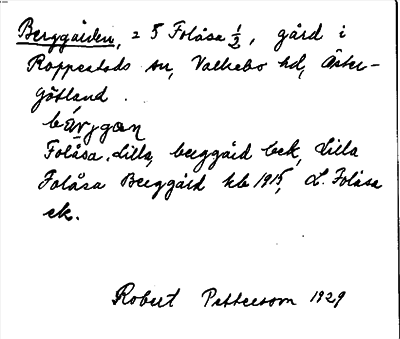 Berggården, = 5 Folåsa 1/2, gård i
Rappestads sn, Valkebo hd, Öster-
götland.
bärjgan
Folåsa, Lilla, berggård bek, Lilla
Folåsa Berggård kb 1915, L. Folåsa
ek.
Robert Pettersson 1929